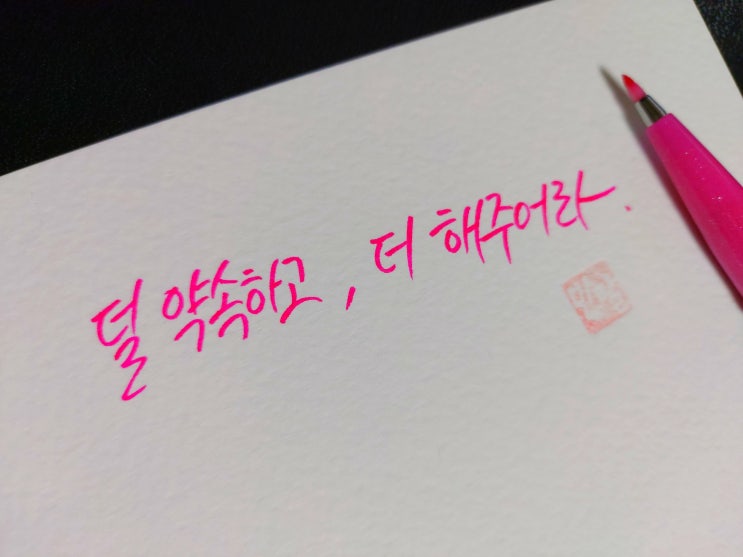 덜 약속하고, 더 해주어라.